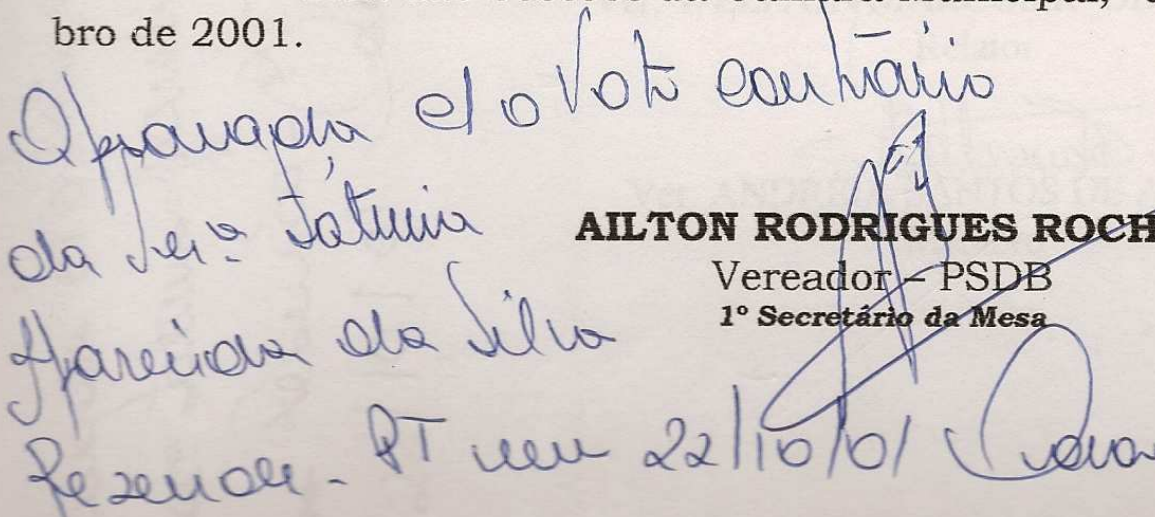 da Câmara Municipal,
bro de 2001.
Aprovada c/ o Voto contrário
da Ver.ª Fátima
Aparecida da Silva
Rezende - PT em 22/10/01
AILTON RODRIGUES ROCH
Vereador – PSDB
1º Secretário da Mesa